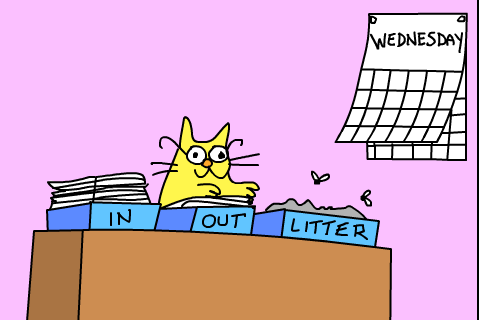 WEDNESDAY
IN
OUT
LITTER